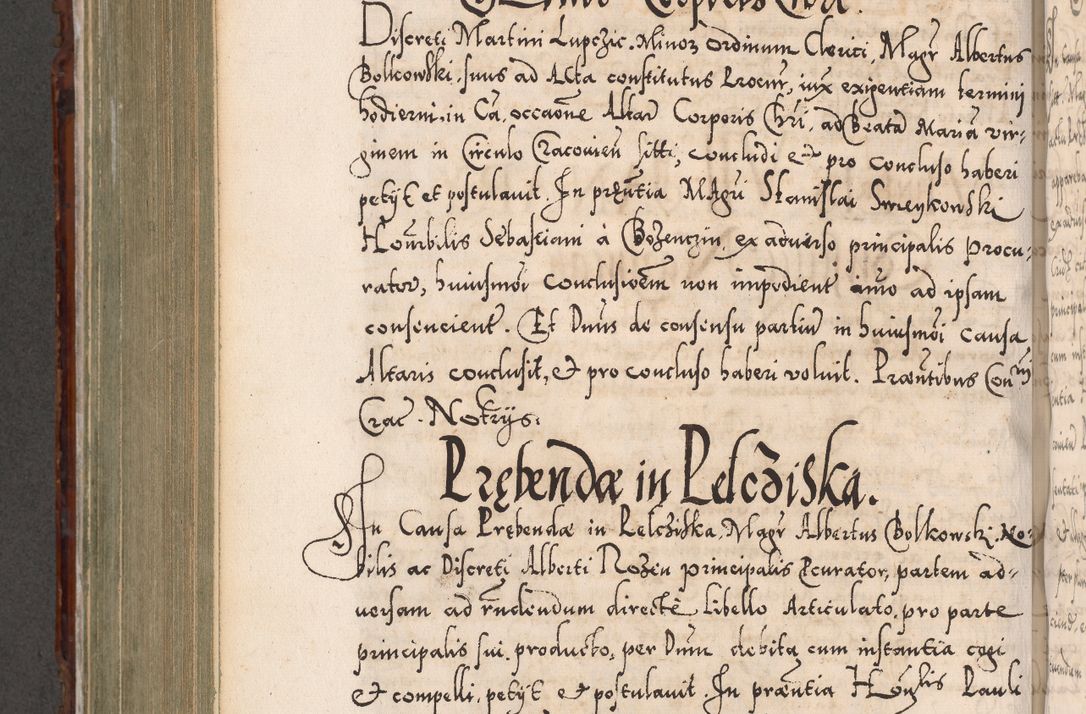 Corporis Christi.
Discreti Martini Lupczic. Minoꝝ ordinum Clerici, Magr̄ Albertus
Bolkowski, suus ad Acta constitutus Procur̄, iux̄ exigentiam termini
hodierni, in Cā, occaōne Altar̄ Corporis Chrī, ad Beatā Mariā vir-
ginem in Circulo Cracovien̄ sitti, concludi et pro concluso haberi
petÿt et postulavit. In prēntia MAgrī Stanislai Smeykowski
Honōrbilis Sebastiani à Bozenczin, ex adverso principalis procu-
rator, huiusmōi Conclusioēm non impedient̄ imo ad ipsam
consencient̄. Et Dnūs de consensu partiū in huiusmōi causa
Altaris conclusit, et pro concluso haberi voluit. Praēntibus Con
Crac. Notrÿs.
Prębendæ in Pelcziska.
In Causa Prębendæ in Pelcziska, Magr̄ Albertus Bolkowski, No-
bilis ac Discreti Alberti Rozen principalis Pcurator, partem ad-
versam ad rn̄dendum directē Libello Articulato, pro parte
principalis sui producto, per Dnūm debita cum instantia cogi
et compelli, petÿt et postulavit. In praēntia Honbilis Pauli